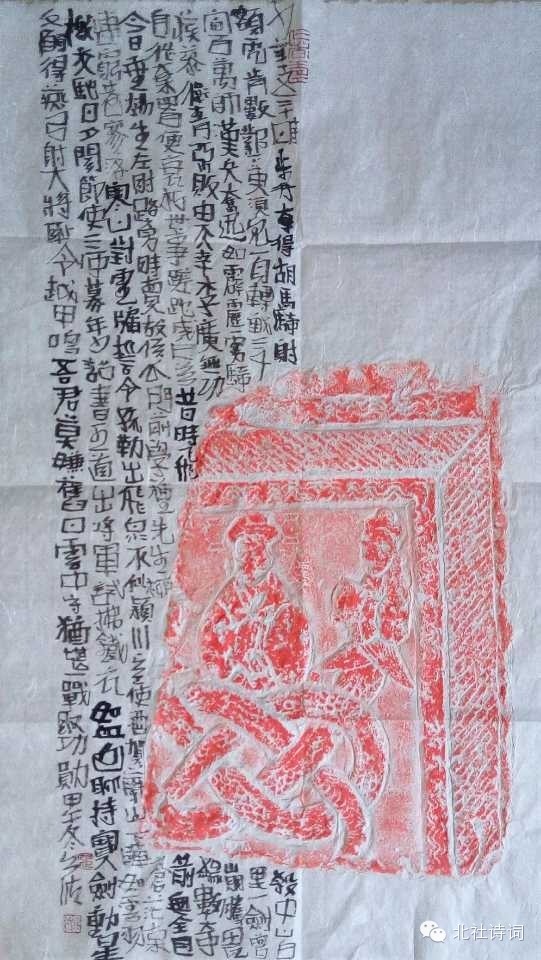 年十五二十時步行奪得胡馬騎射殺中山白
額虎肯數鄴下黃須兒一身轉戰三千里一劍曾
當百萬師漢兵奮迅如霹靂虜騎崩騰畏
蒺藜衛青不敗由天幸李廣無功緣數奇
自從棄置便衰朽世事蹉跎成白首昔時飛箭無全目
今日垂楊生左肘路旁時賣故侯瓜門前學種先生柳蒼茫古
木連窮巷寥落寒山對虛牖誓令疏勒出飛泉不似潁川空使酒賀蘭山下陣如雲羽
檄交馳日夕聞節使三河募年少詔書五道出將軍試拂鐵衣如雪色聊持寶劍動星
文願得燕弓射大將恥令越甲鳴吾君莫嫌舊日雲中守猶堪一戰取功勛甲午冬
北社诗词